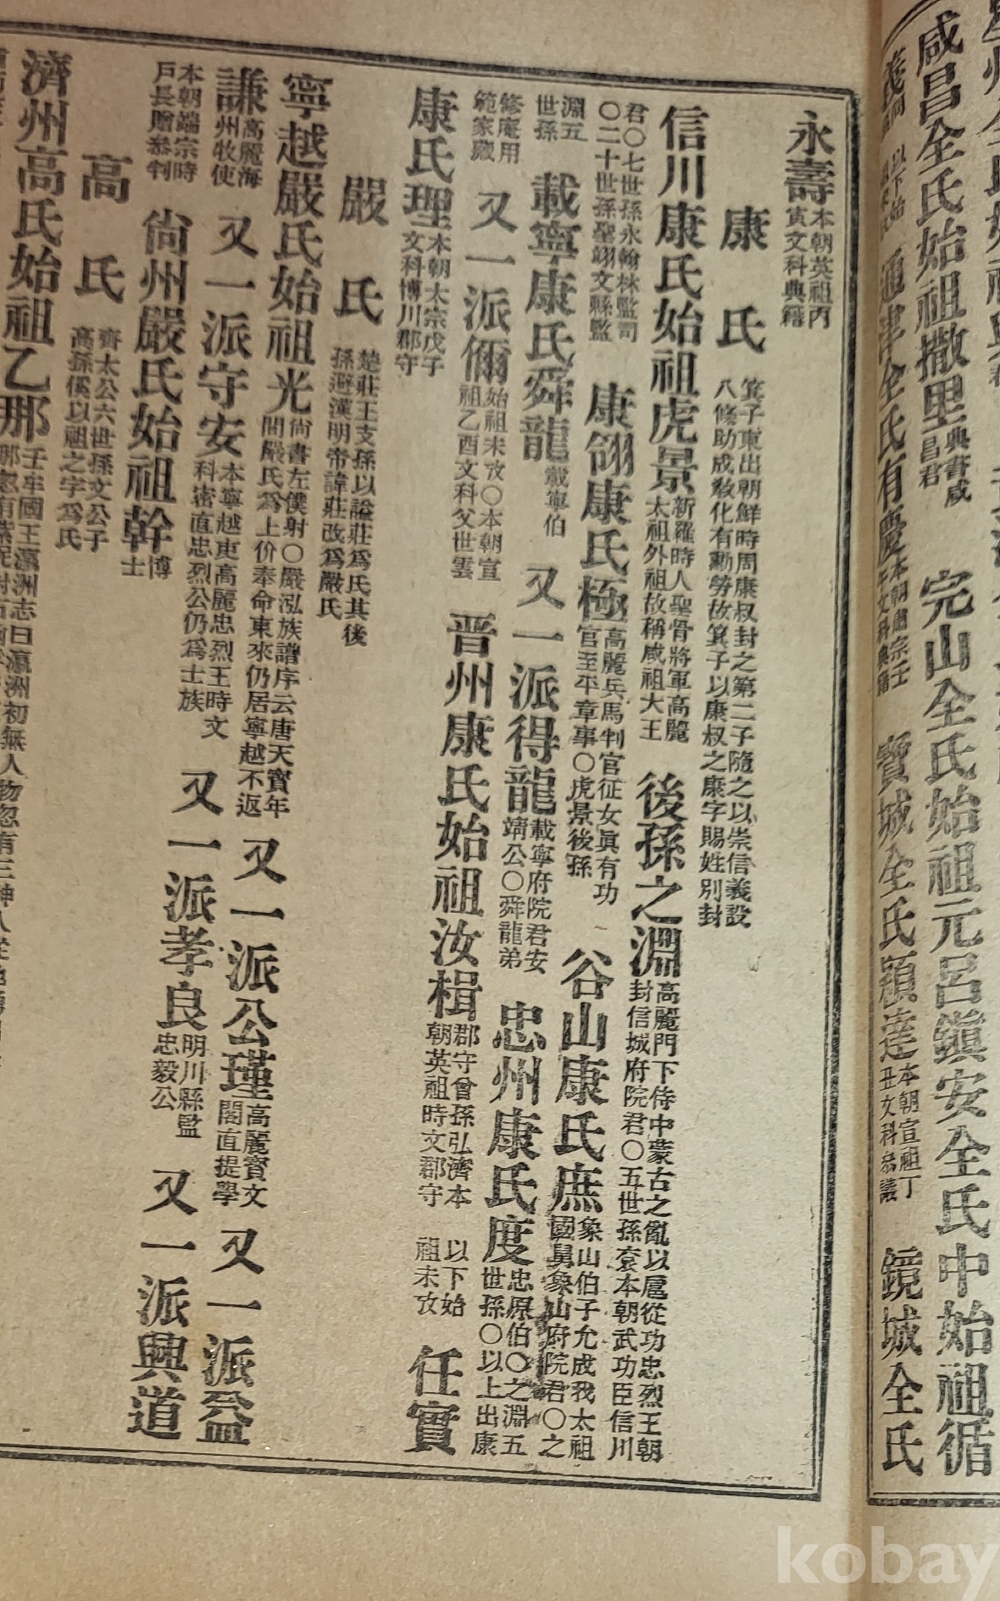 咸昌全氏始祖撒里典書咸昌君 完山全氏始祖元呂鎭安全氏中始祖循
通津全氏有慶 寶城全氏顯達本朝宣祖丁丑文科參議 鏡城全氏
永壽本朝英祖丙寅文科典籍
康氏箕子東出朝鮮時周康叔封之第二子隨之以崇信義設八條助成敎化有勳勞故箕子以康叔之康字賜姓別封
信川康氏始祖虎景新羅時人聖骨將軍高麗太祖外祖故稱咸祖大王 後孫之淵高麗門下侍中蒙古之亂以扈從功忠烈王朝封信城府院君〇五世孫袞本朝武功臣信川
君〇七世孫永翰林監司〇二十世孫聖翊文縣監 康翎康氏極高麗兵馬判官征女眞有功官至平章事〇虎景後孫 谷山康氏庶象山伯子允成我太祖國舅象山府院君〇之
淵五世孫 載寧康氏舜龍載寧伯 又一派得龍載寧府院君安靖公〇舜龍弟 忠州康氏度忠原伯〇之淵五世孫〇以上出康
修庵用範家藏 又一派儞始祖未攷〇本朝宣祖乙酉文科父世雲 晋州康氏始祖汝楫郡守曾孫弘濟本朝英祖時文郡守 以下始祖未攷 任實
康氏理本朝太宗戊子文科博川郡守
嚴氏楚莊王支孫以謚莊爲氏其後孫避漢明帝諱莊改爲嚴氏
寧越嚴氏始祖光尙書左僕射〇嚴泓族譜序云唐天寶年間嚴氏爲上价奉命東來仍居寧越不返 又一派公瑾高麗寶文閣直提學 又一派益
謙高麗海州牧使 又一派守安本寧越吏高麗忠烈王時文科密直忠烈公仍爲士族 又一派孝良明川縣監忠毅公 又一派興道
本朝端宗時戶長贈參判 尙州嚴氏始祖幹博士
高氏齊太公六世孫文公子高孫傒以祖之字爲氏
濟州高氏始祖乙那壬牟國王瀛洲志曰瀛洲初無人物忽有三神人從
kobay